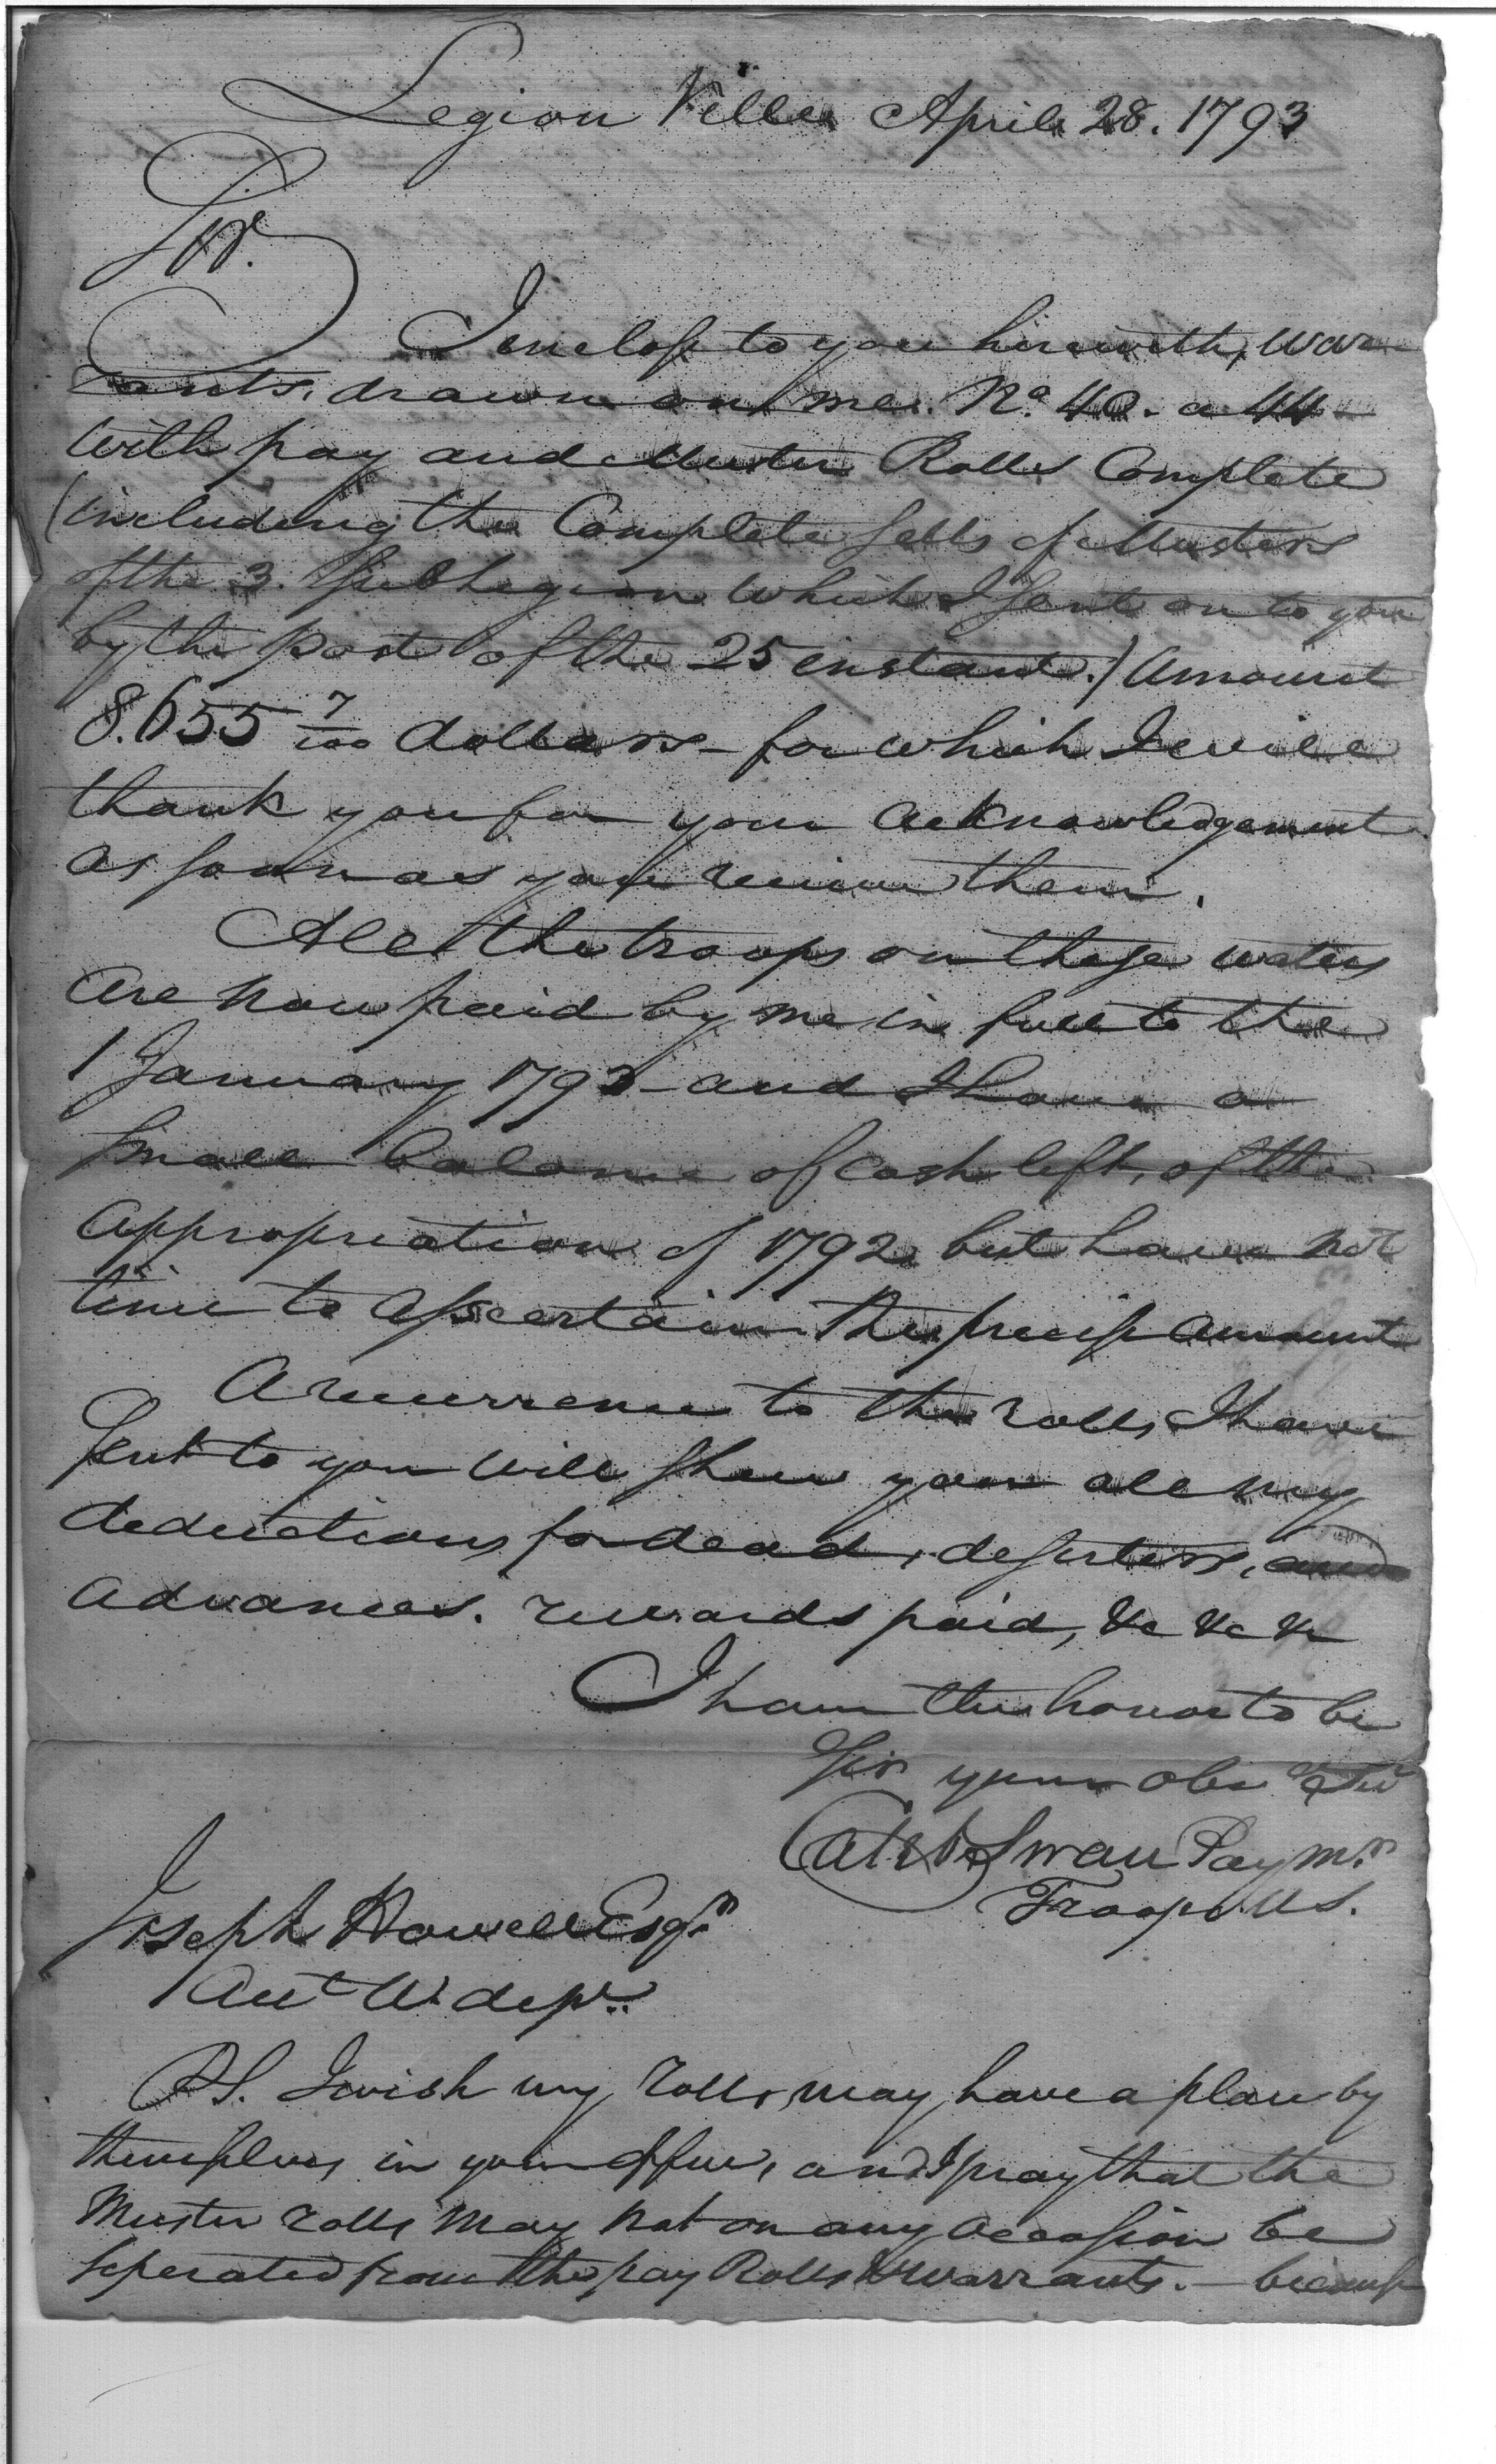 Legion Ville April 28. 1793
Sir.
I enclose to you herewith, War-
rants, drawn on me. No. 40. a 44
with pay and Muster Rolls Complete
(including the Complete setts of Musters
of the 3. Sub Legion which I sent on to you
by the post of the 25 instant.) Amount
8.655 7/100 dollars - for which I will
thank you for your acknowledgement
as soon as you receive them.
All the troops on these waters
are now paid by me in full to the
1 January 1793 - and I have a
small balance of cash left, of the
appropriation of 1792, but have not
time to asscertain the precise amount
A recurrence to the rolls I have
sent to you will shew you all my
deductions for dead, deserters,
advances. rewards paid, &c &c &c
I have the honor to be
Sir your obe
Caleb Swan Paymr
Troops U S.
Joseph Howell Esqr
Acct W. depr.
P.S. I wish my rolls may have a place by
themselves in your office, and I pray that the
Muster rolls may not on any occasion be
seperated from the pay Rolls & warrants. - because